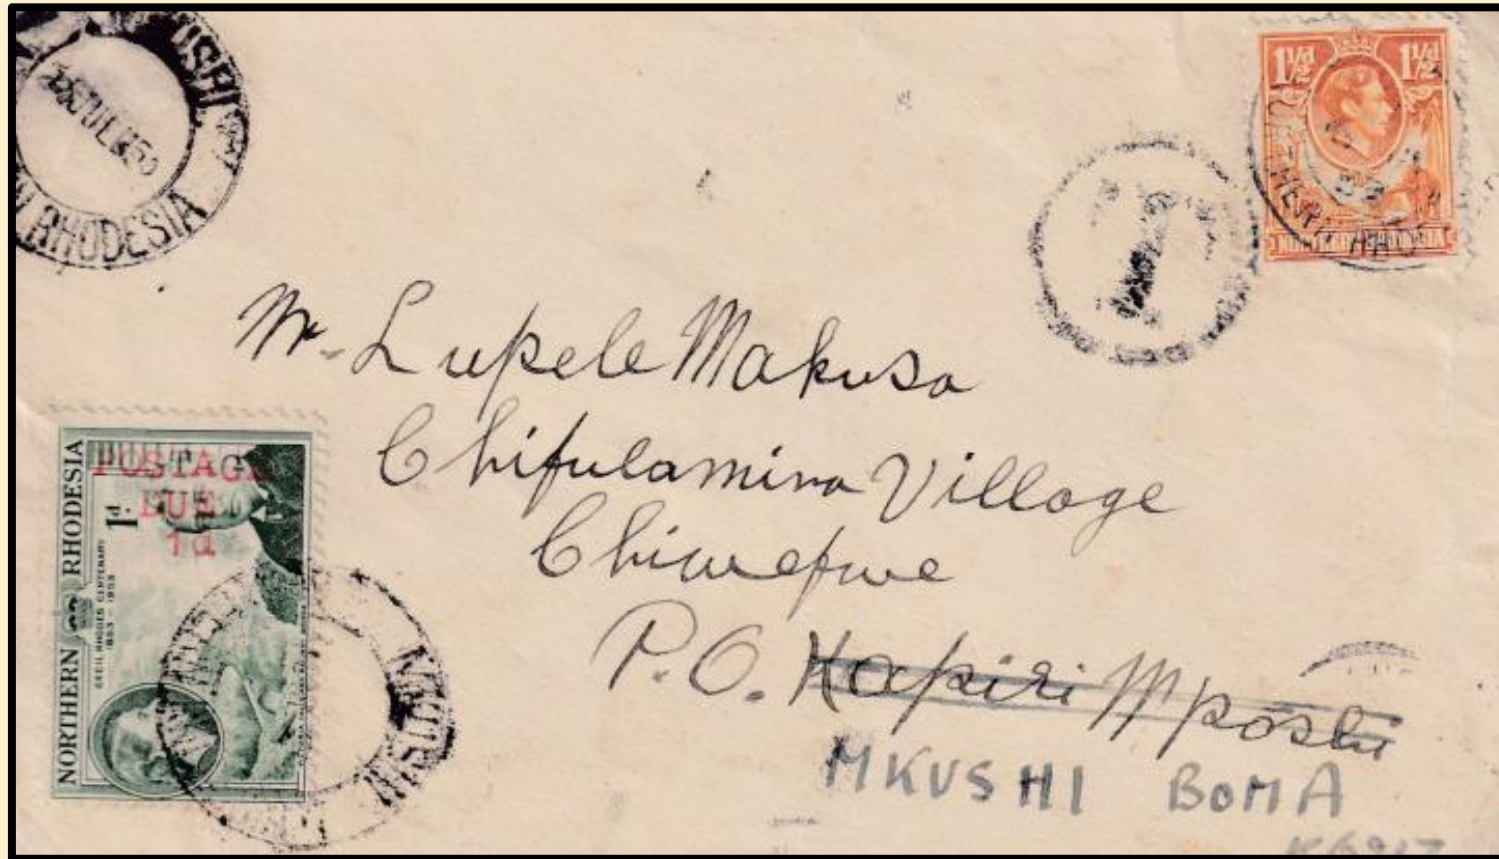 USHI
JUL 53
N. RHODESIA
1½d 1½d
NORTHERN RHODESIA
T
Mr. Lupele Makusa
Chifulamina Village
Chiwefwe
P.O. Kapiri Mposhi
MKUSHI BOMA
NORTHERN RHODESIA
1d.
CECIL RHODES CENTENARY
1853 1953
POSTAGE
DUE
1d
MKUSHI